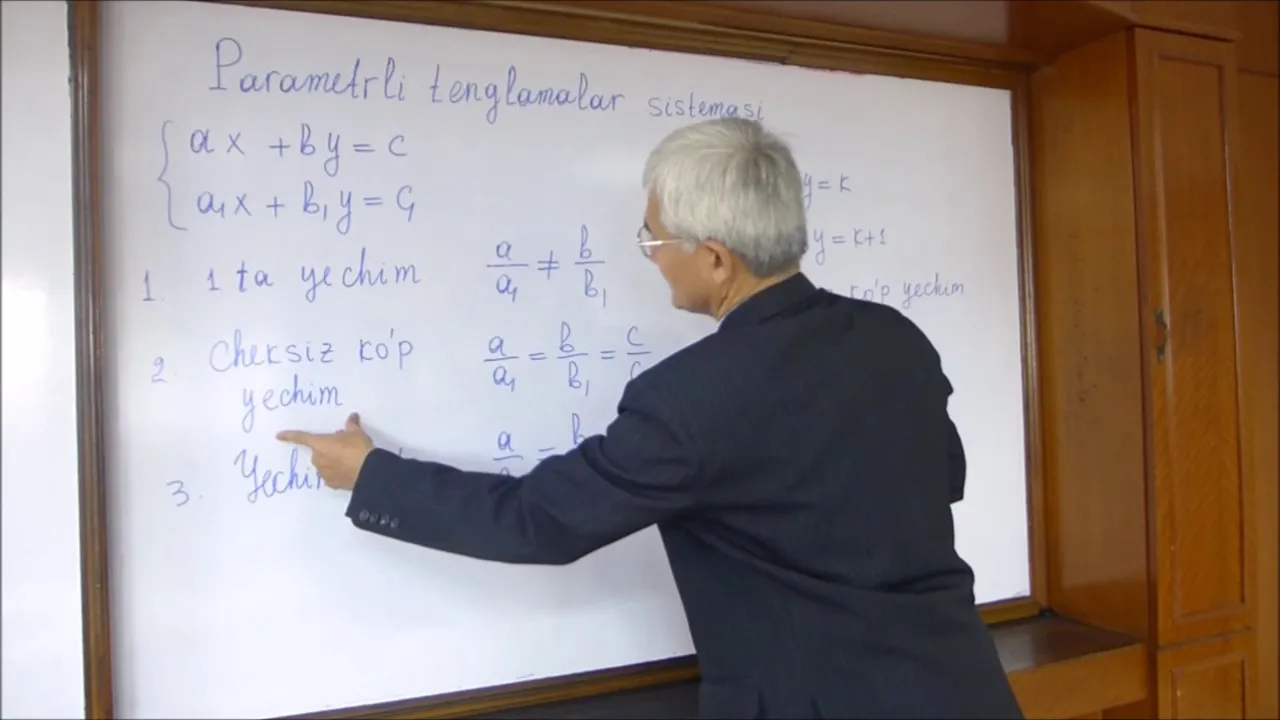 Parametrli tenglamalar sistemasi
ax + by = c
a₁x + b₁y = c₁
1. 1 ta yechim a/a₁ ≠ b/b₁
2. Cheksiz ko'p a/a₁ = b/b₁ = c/c
yechim
3. a =
y = k
y = k+1
ko'p yechim